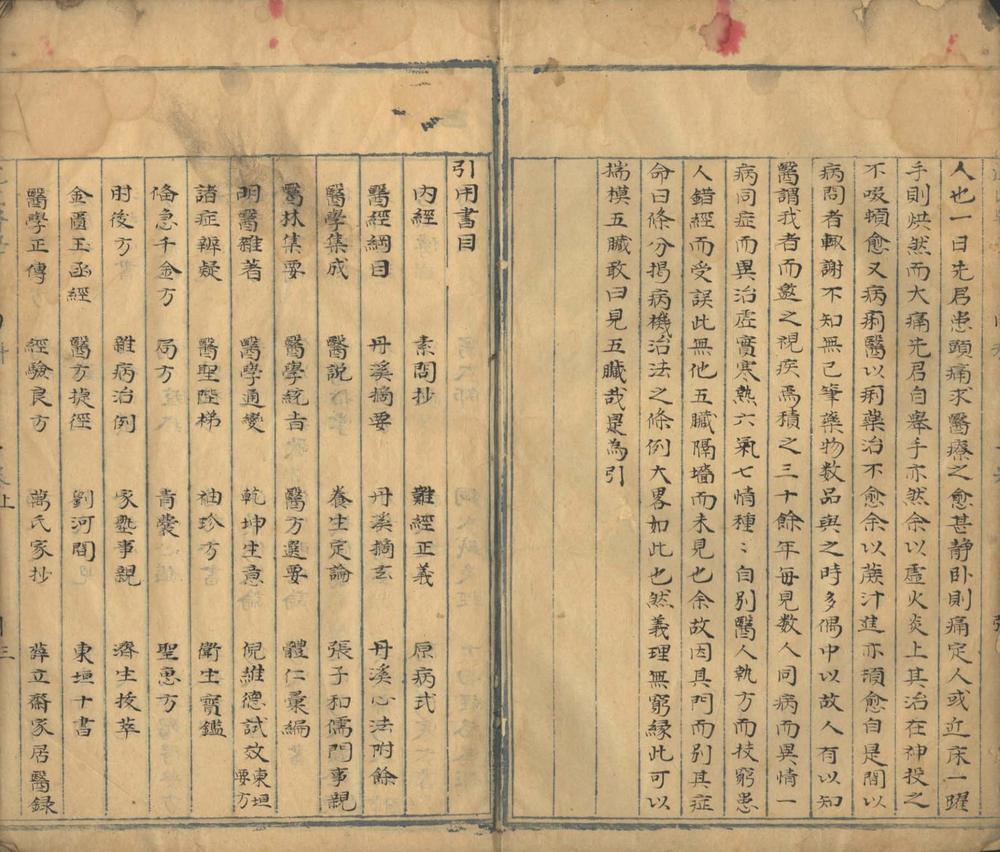 人也一日先君患頭痛求醫療之愈甚静卧則痛定人或近床一躍
手則烘然而大痛先君自舉手亦然余以虛火炎上其治在神投之
不吸頓愈又病痢醫以痢藥治不愈余以蔗汁進亦頓愈自是間以
病問者輒謝不知無已筆藥物数品與之時多偶中以故人有以知
醫謂我者而邀之視疾焉積之三十餘年每見数人同病而異情一
病同症而異治虛實寒熱六氣七情種〻自别醫人執方而技窮患
人錯經而受誤此無他五臟隔墻而未見也余故因其門而别其症
命曰條分掲病機治法之條例大畧如此也然義理無窮縁此可以
揣模五臟敢曰見五臟哉是為引
引用書目
内經 素問抄 難經正義 原病式
醫經綱目 丹溪摘要 丹溪摘玄 丹溪心法附餘
醫學集成 醫説 養生定論 張子和儒門事親
醫林集要 醫學統旨 醫方選要 體仁彙編
明醫雜著 醫學通變 乾坤生意 倪維德試效東垣要方
諸症辨疑 醫聖陛梯 袖珍方 衛生寳鑑
俻急千金方 局方 青囊 聖惠方
肘後方 雜病治例 家塾事親 濟生拔萃
金匱玉函經 醫方捷徑 劉河間 東垣十書
醫學正傳 經驗良方 萬氏家抄 薛立齋家居醫録